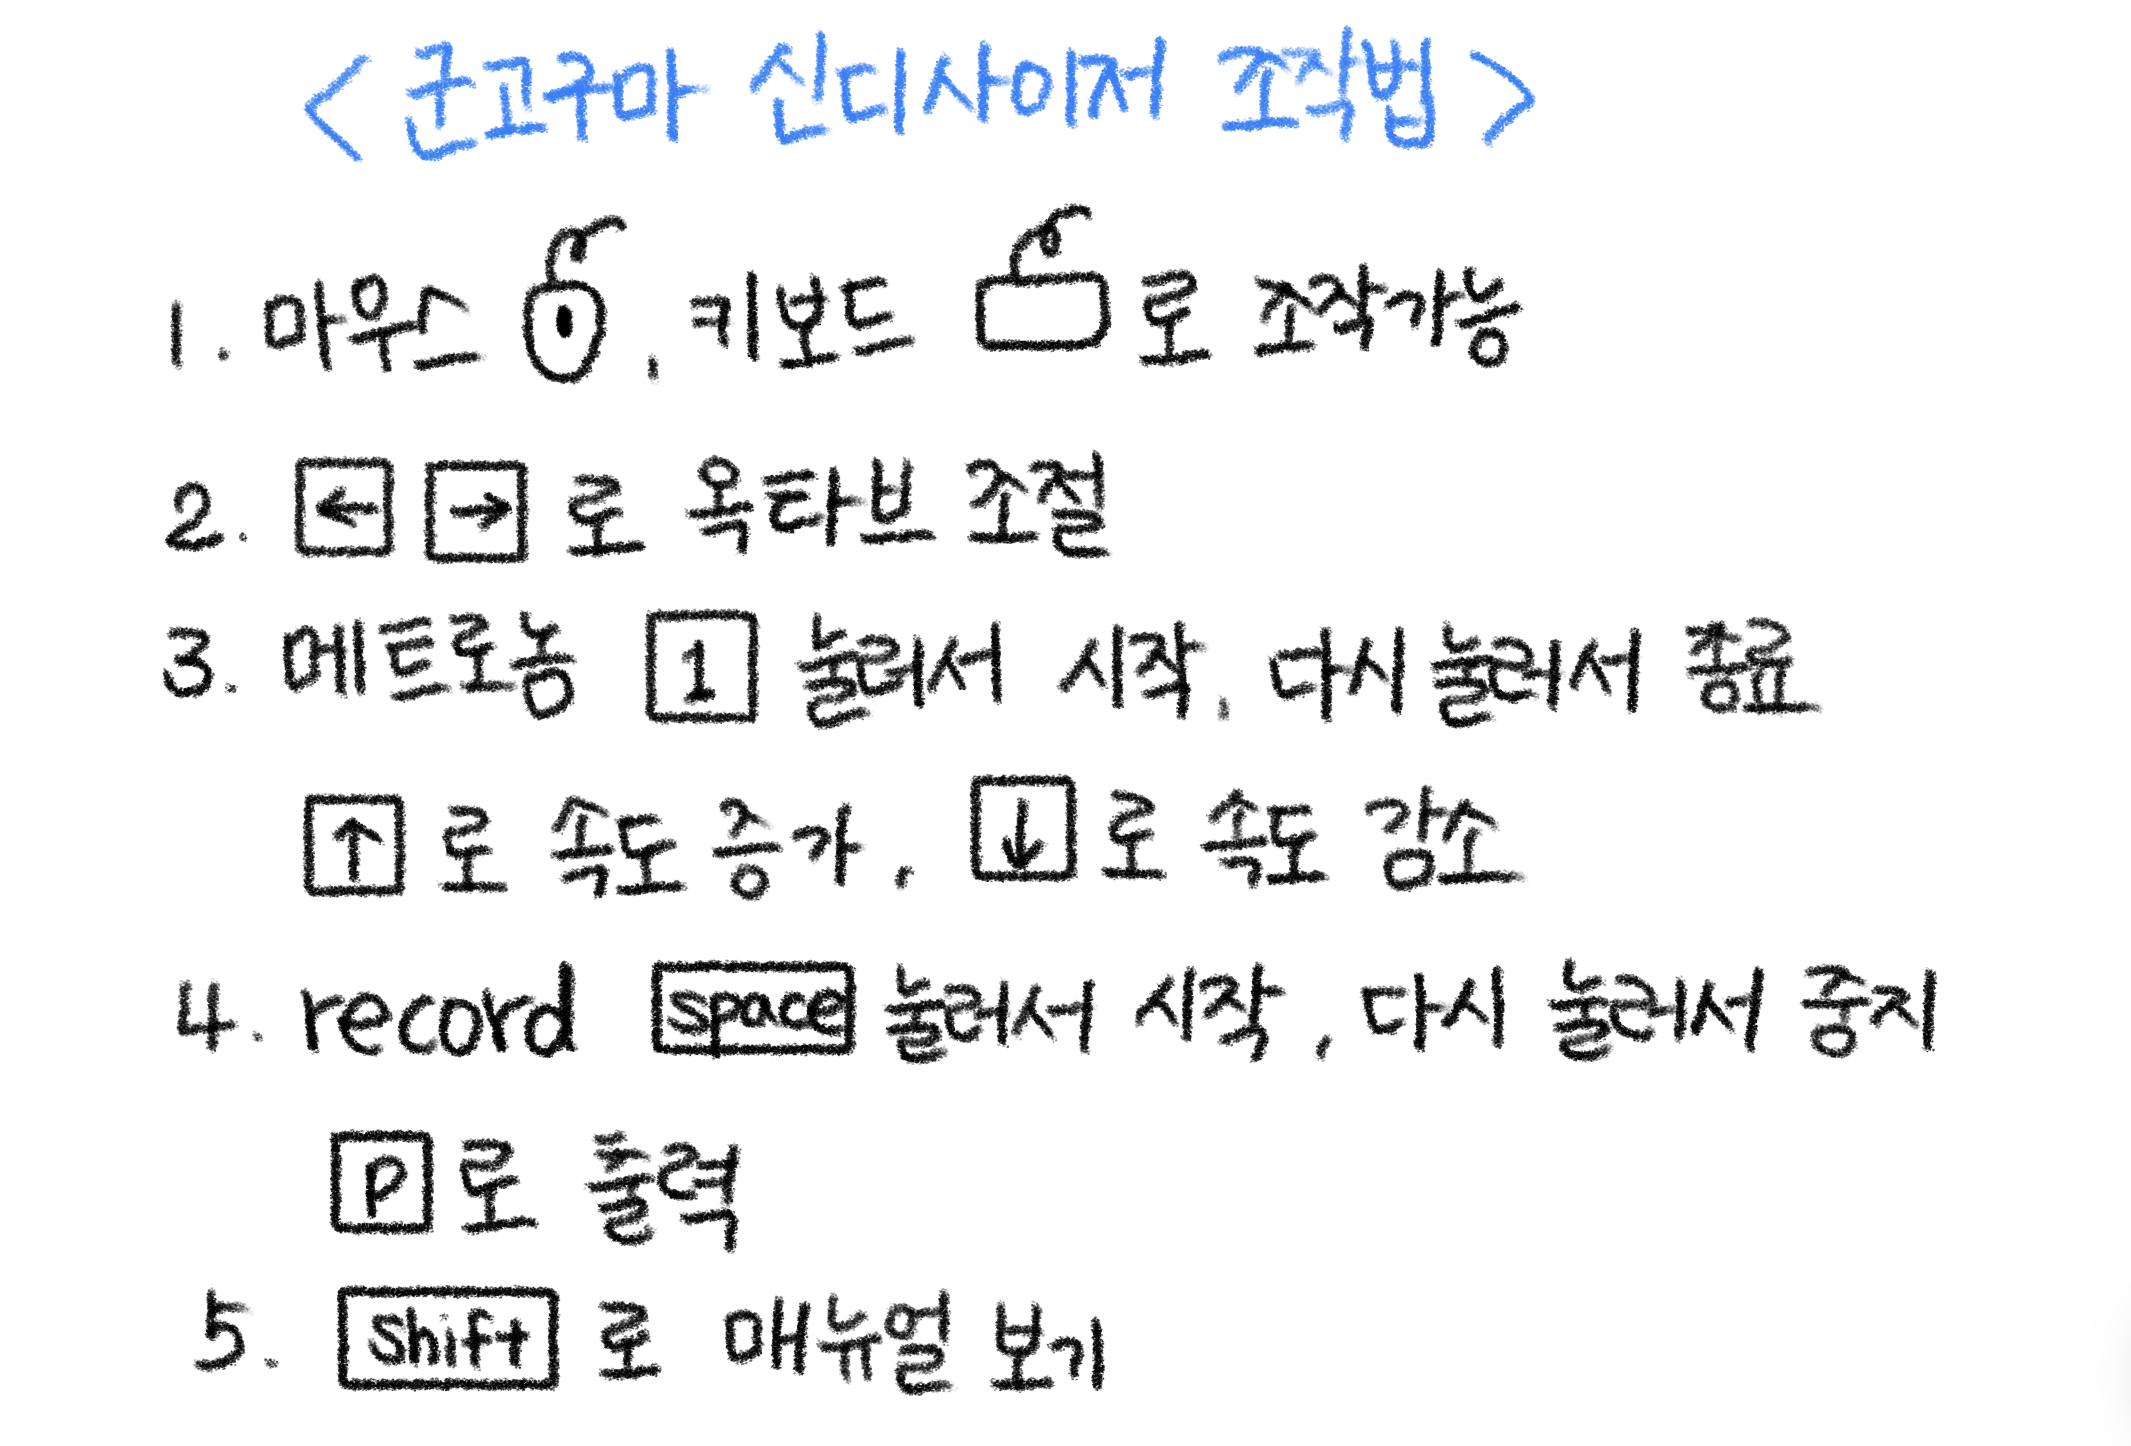 <군고구마 신디사이저 조작법>
1. 마우스, 키보드로 조작가능
2. ← → 로 옥타브 조절
3. 메트로놈 1 눌러서 시작, 다시 눌러서 종료
↑ 로 속도 증가, ↓ 로 속도 감소
4. record space 눌러서 시작, 다시 눌러서 중지
P 로 출력
5. shift 로 매뉴얼 보기